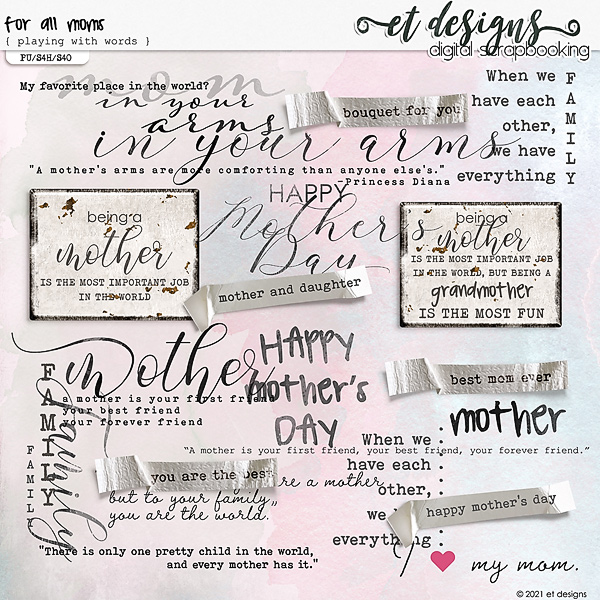 for all moms
{ playing with words }
PU/S4H/S4O
et designs
digital scrapbooking
mom
My favorite place in the world?
in your
arms
in your arms
bouquet for you
When we
have each
other,
we have
everything
FAMILY
"A mother's arms are more comforting than anyone else's."
-Princess Diana
HAPPY
Mother's
Day
being a
mother
IS THE MOST IMPORTANT JOB
IN THE WORLD
being a
mother
IS THE MOST IMPORTANT JOB
IN THE WORLD, BUT BEING A
grandmother
IS THE MOST FUN
mother and daughter
mother
a mother is your first friend
your best friend
your forever friend
HAPPY
mother's
DAY
best mom ever
mother
FAMILY
FAMILY
family
"A mother is your first friend, your best friend, your forever friend."
you are the best
re a mother
but to your family,
you are the world.
When we
have each
other,
we
everything
happy mother's day
"There is only one pretty child in the world,
and every mother has it."
I ♥ my mom.
© 2021 et designs